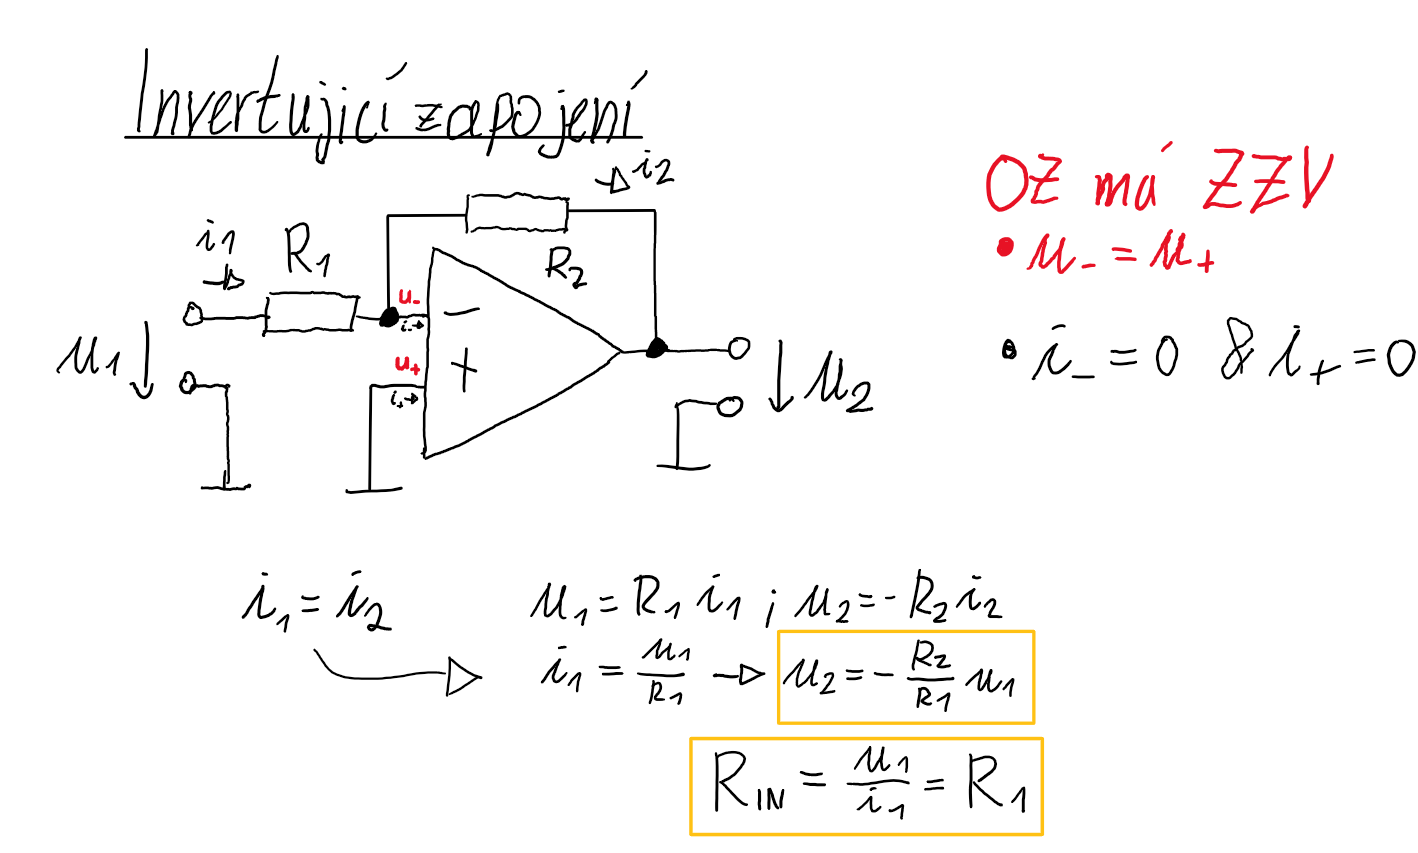 Invertující zapojení
i2
OZ má ZZV
i1
R1
R2
• u- = u+
u-
i-
u1
u+
i+
u2
• i- = 0 & i+ = 0
i1 = i2
u1 = R1 i1 ; u2 = - R2 i2
i1 = u1/R1 → u2 = - R2/R1 u1
RIN = u1/i1 = R1